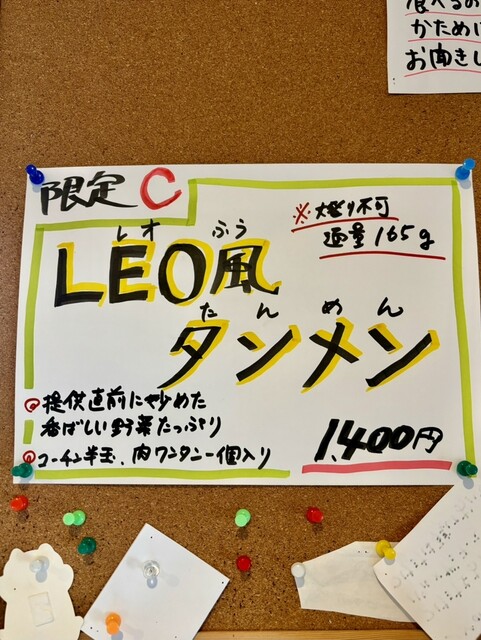 かために
限定 C
※大盛り不可
麺量165g
レオ ふう
LEO風
たんめん
タンメン
提供直前に炒めた
香ばしい野菜たっぷり
コーチン半玉、肉ワンタン一個入り
1,400円